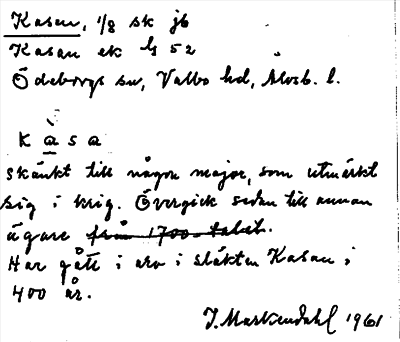 Kasen, 1/8 sk jb
Kasan ek bl 52
Ödeborgs sn, Valbo hd, Älvsb. l.
kasa
skänkt till någon major, som utmärkt
sig i krig. Övergick sedan till annan
ägare från 1700-talet.
Har gått i arv i släkten Kasan i
400 år.
J. Markendahl 1961